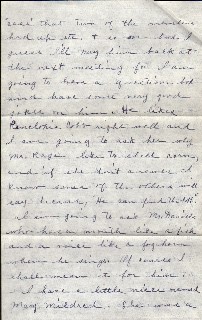 that two of the
had up etc. so bad I
guess I'll pay him back at
the next meeting for I am
going to have a question box
and have some very good
jokes on him. He likes
Penelope Cobb right well and
I am going to ask her why
Mr. Rage likes to shell corn,
and if she don't answer I
know some of the others will
say because he can find the Cobb
I am going to ask
who has a mouth like a fish
and a voice like a fog horn
when he sings. Of course I
shall mean it for him.
I have a little niece named
Mary Mildred. She was a